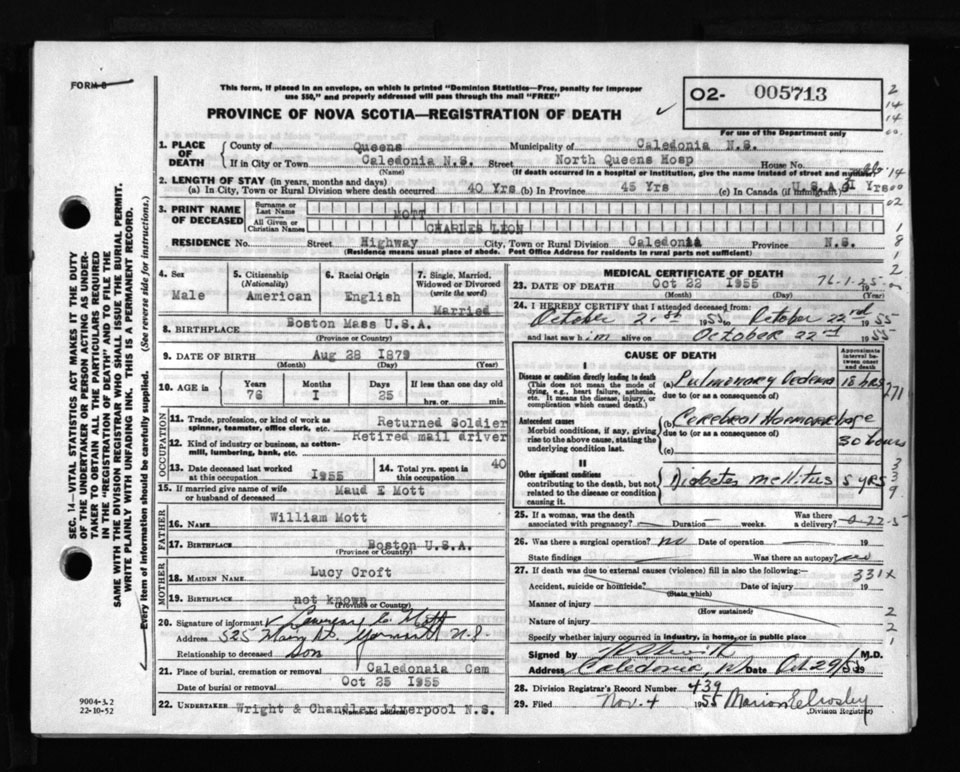 FORM 6
This form, if placed in an envelope, on which is printed "Dominion Statistics—Free, penalty for improper
use $50," and properly addressed will pass through the mail "FREE"
PROVINCE OF NOVA SCOTIA—REGISTRATION OF DEATH
02- 005713
For use of the Department only
SEC. 14—VITAL STATISTICS ACT MAKES IT THE DUTY
OF THE UNDERTAKER OR PERSON ACTING AS UNDER-
TAKER TO OBTAIN ALL THE PARTICULARS REQUIRED
IN THE "REGISTRATION OF DEATH" AND TO FILE THE
SAME WITH THE DIVISION REGISTRAR WHO SHALL ISSUE THE BURIAL PERMIT.
WRITE PLAINLY WITH UNFADING INK. THIS IS A PERMANENT RECORD.
Every item of information should be carefully supplied. (See reverse side for instructions.)
1. PLACE OF DEATH
County of Queens Municipality of Caledonia N.S.
If in City or Town Caledonia N.S. Street North Queens Hosp House No.
(Name) (If death occurred in a hospital or institution, give the name instead of street and number)
2. LENGTH OF STAY (in years, months and days)
(a) In City, Town or Rural Division where death occurred 40 Yrs (b) In Province 45 Yrs (c) In Canada (if immigrant) U.S.A. Yrs
3. PRINT NAME OF DECEASED
Surname or Last Name MOTT
All Given or Christian Names CHARLES LEON
RESIDENCE No. Street Highway City, Town or Rural Division Caledonia Province N.S.
(Residence means usual place of abode. Post Office Address for residents in rural parts not sufficient)
4. Sex Male
5. Citizenship (Nationality) American
6. Racial Origin English
7. Single, Married, Widowed or Divorced (write the word) Married
8. BIRTHPLACE Boston Mass U.S.A.
(Province or Country)
9. DATE OF BIRTH Aug 28 I879
(Month) (Day) (Year)
10. AGE IN Years 76 Months I Days 25 If less than one day old hrs. or min.
OCCUPATION
11. Trade, profession, or kind of work as spinner, teamster, office clerk, etc. Returned Soldier
12. Kind of industry or business, as cotton-mill, lumbering, bank, etc. Retired mail driver
13. Date deceased last worked at this occupation I955
14. Total yrs. spent in this occupation 40
15. If married give name of wife or husband of deceased Maud E Mott
FATHER
16. NAME William Mott
17. BIRTHPLACE Boston U.S.A.
(Province or Country)
MOTHER
18. MAIDEN NAME Lucy Croft
19. BIRTHPLACE not known
(Province or Country)
20. Signature of informant Mott
Address 525 Main St. Yarmouth N.S.
Relationship to deceased Son
21. Place of burial, cremation or removal Caledonaia Cem
Date of burial or removal Oct 25 I955
22. UNDERTAKER Wright & Chandler Liverpool N.S.
(Name and address)
9004-3.2
22-10-52
MEDICAL CERTIFICATE OF DEATH
23. DATE OF DEATH Oct 22 I955 76-1-25
(Month) (Day) 19 (Year)
24. I HEREBY CERTIFY that I attended deceased from:
October 21st 1955 to October 22nd 1955
and last saw him alive on October 22nd 1955
CAUSE OF DEATH
Approximate interval between onset and death
I
Disease or condition directly leading to death
(This does not mean the mode of dying, e.g., heart failure, asthenia, etc. It means the disease, injury, or complication which caused death.)
(a) Pulmonary Oedema 18 hrs
due to (or as a consequence of)
271
Antecedent causes
Morbid conditions, if any, giving rise to the above cause, stating the underlying condition last.
(b) Cerebral Hemorrhage 30 hours
due to (or as a consequence of)
(c)
II
Other significant conditions
contributing to the death, but not related to the disease or condition causing it.
Diabetes mellitus 5 yrs
25. If a woman, was the death associated with pregnancy? Duration weeks. Was there a delivery?
26. Was there a surgical operation? no Date of operation 19
State findings Was there an autopsy? no
27. If death was due to external causes (violence) fill in also the following:— 331x
Accident, suicide or homicide? Date of injury 19
(State which)
Manner of injury
(How sustained)
Nature of injury
Specify whether injury occurred in industry, in home, or in public place
Signed by M.D.
Address Caledonia, Date Oct 29/55
28. Division Registrar's Record Number 439
29. Filed Nov. 4 1955 Marion E Crosby
(Division Registrar)